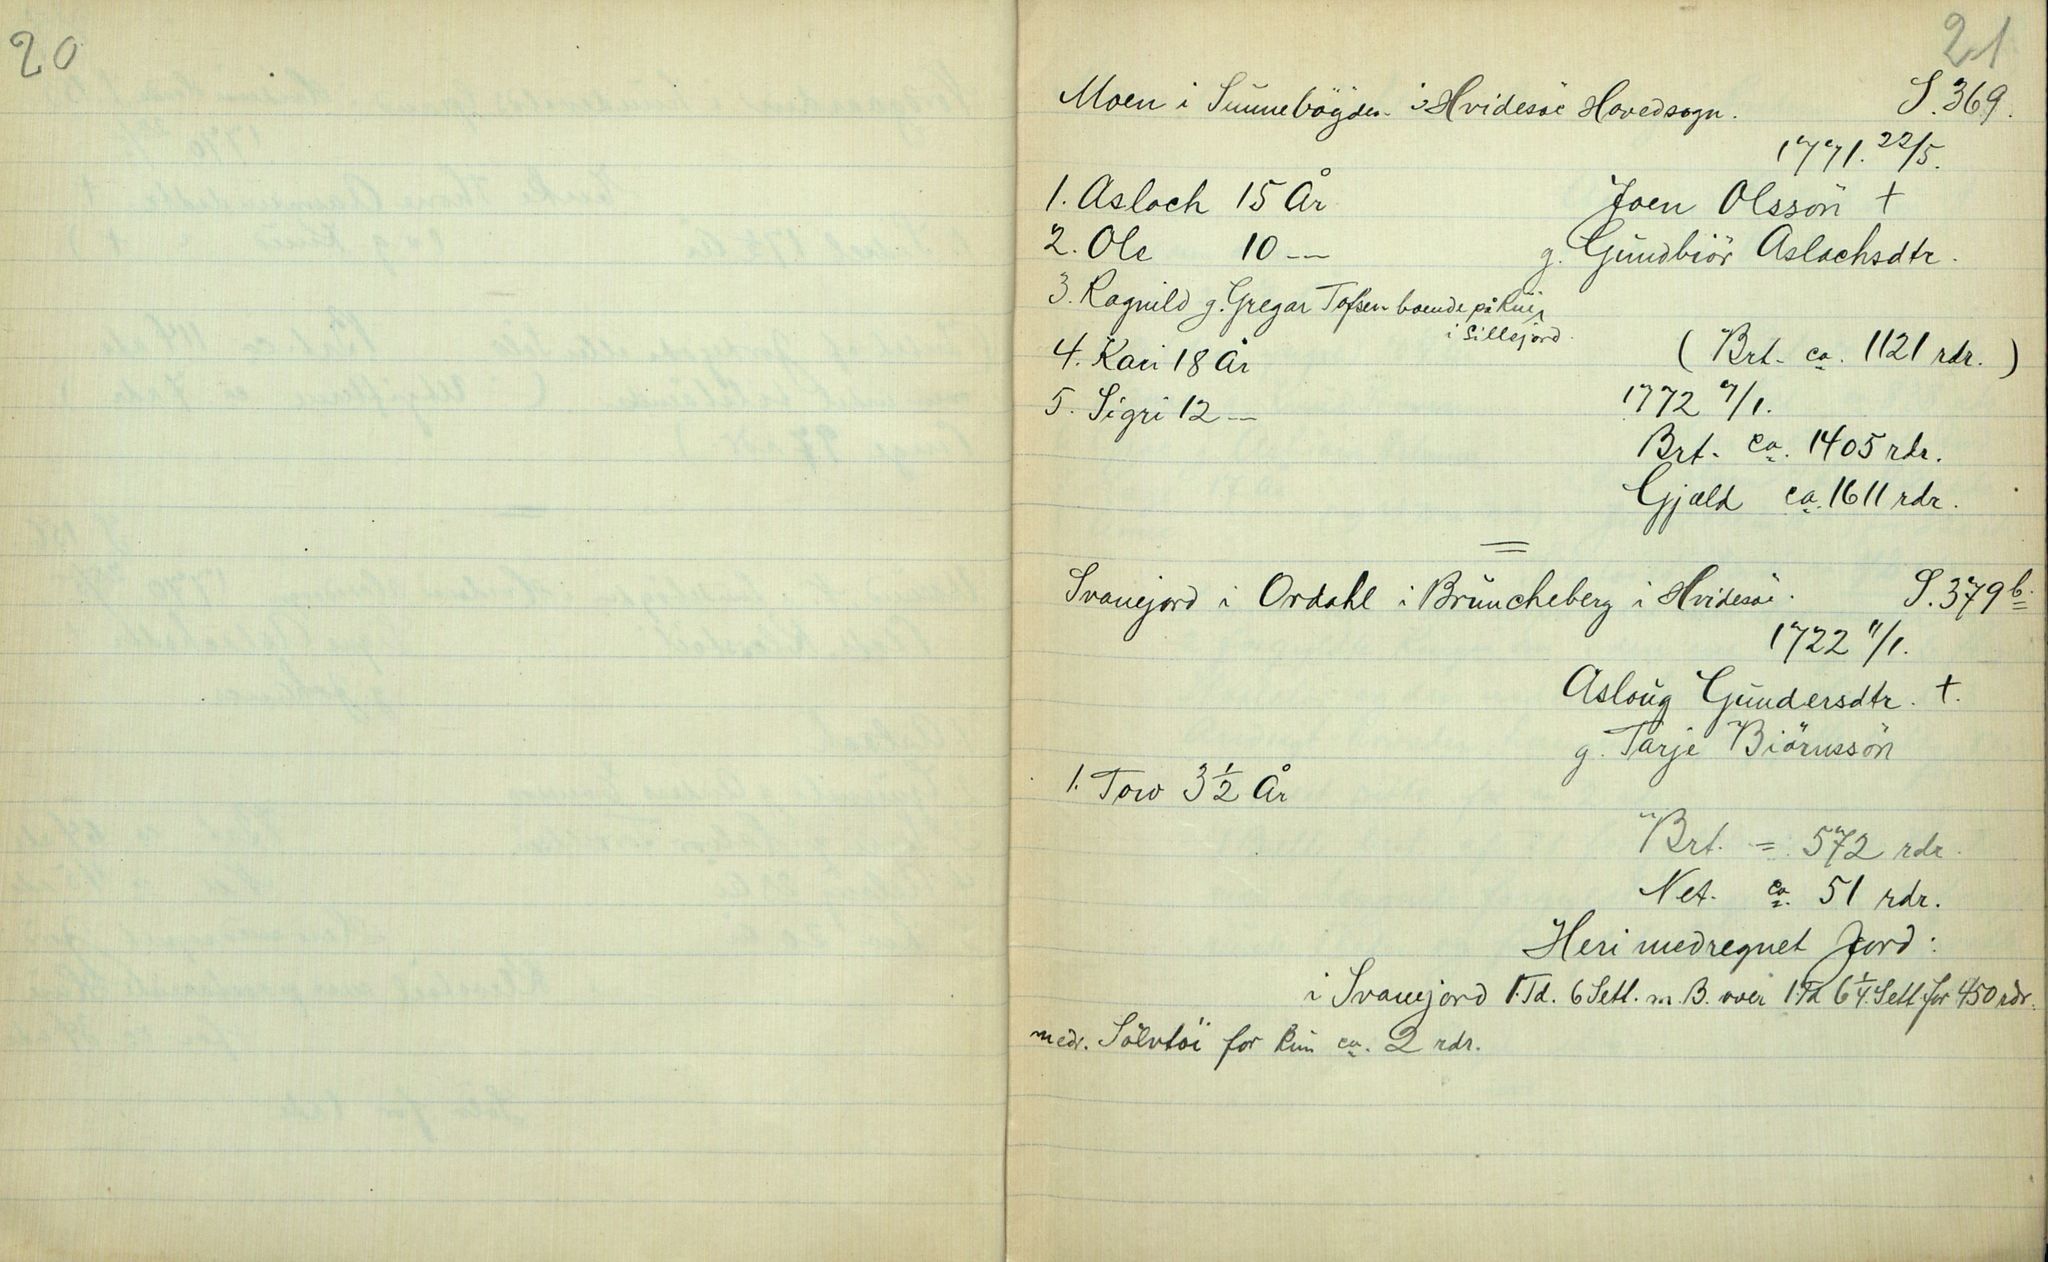 20
21
Moen i Sunnebögden i Hvidesöe Hovedsogn. S. 369.
1771. 22/5.
1. Asloch 15 År Joen Olssön †
2. Ole 10 -- g. Gŭndbiör Aslochsdtr.
3. Ragnild g. Gregar Tofsen boende på
i Sillejord.
4. Kari 18 År ( Brt. ca. 1121 rdr. )
5. Sigri 12 -- 1772 7/1.
Brt. ca. 1405 rdr.
Gjæld ca. 1611 rdr.
Svanejord i Ordahl i Brŭncheberg i Hvidesöe. S. 379 b.
1722 11/1.
Asloŭg Gŭndersdtr. †.
g. Tarje Biörnssön
1. Tow 3 1/2 År
Brt. = 572 rdr.
Net. ca. 51 rdr.
Heri medregnet Jord:
i Svanejord 1 Td. 6 Setl. m. B. over 1 Td 6 1/4 Setl for 450 rdr.
medr. Sölvtöi for kun ca. 2 rdr.